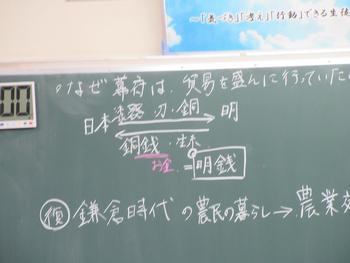 ～「気づき」「考え」「行動」できる生徒
00
○なぜ幕府は、貿易を盛んに行っていたの
日本 刀・銅 明
銅銭・生糸
お金 = 明銭
復 鎌倉時代の農民の暮らし→農業